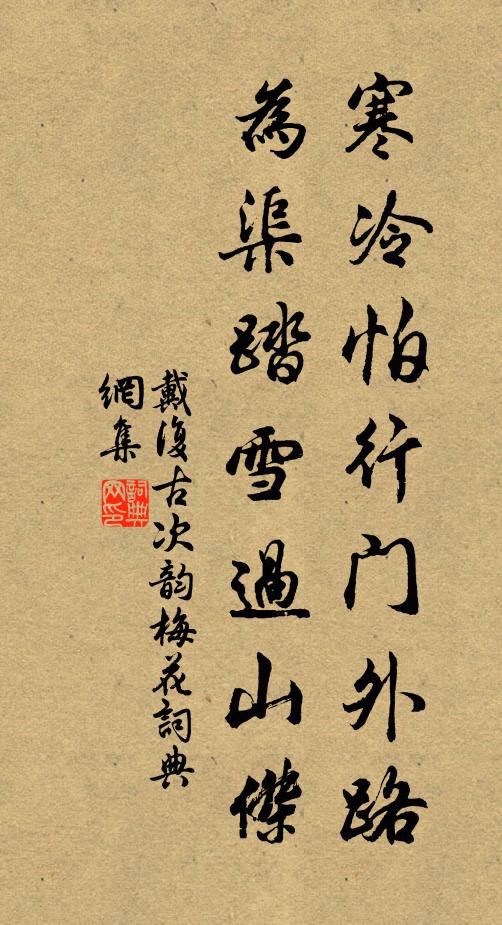 寒冷怕行門外路
為渠踏雪過山傑
戴復古次韵梅花詞典
網集
詞典網印